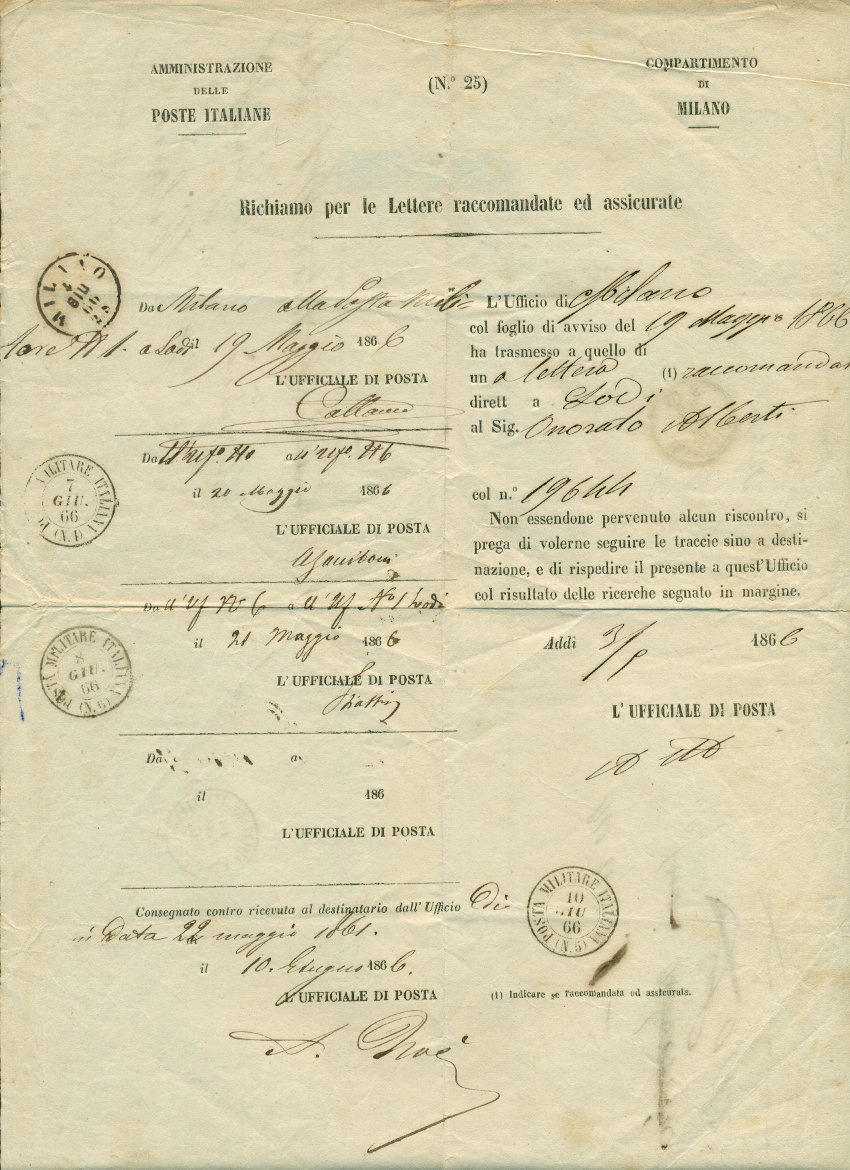 AMMINISTRAZIONE
DELLE
POSTE ITALIANE
(N.º 25)
COMPARTIMENTO
DI
MILANO
Richiamo per le Lettere raccomandate ed assicurate
MILANO
GIU
66
Da Milano alla Posta Mili-
tare N 1. a Lodi il 19 Maggio 1866
L'UFFICIALE DI POSTA
Da a
il 20 Maggio 1866
L'UFFICIALE DI POSTA
POSTA MILITARE ITALIANA (N.1)
7
GIU.
66
Da a N.º 1 Lodi
il 21 Maggio 1866
L'UFFICIALE DI POSTA
POSTA MILITARE ITALIANA (N.6)
8
GIU.
66
Da a
il 186
L'UFFICIALE DI POSTA
Consegnato contro ricevuta al destinatario dall'Ufficio di
in data 22 maggio 1861.
il 10. Giugno 1866.
L'UFFICIALE DI POSTA
L'Ufficio di Milano
col foglio di avviso del 19 Maggio 1866
ha trasmesso a quello di
un a lettera (1) raccomandat
dirett a Lodi
al Sig. Onorato Alberti
col n.º 19644
Non essendone pervenuto alcun riscontro, si
prega di volerne seguire le traccie sino a desti-
nazione, e di rispedire il presente a quest'Ufficio
col risultato delle ricerche segnato in margine.
Addì 3/ 1866
L'UFFICIALE DI POSTA
POSTA MILITARE ITALIANA (N.5)
10
GIU
66
(1) Indicare se raccomandata od assicurata.